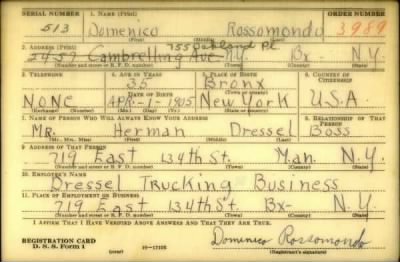 SERIAL NUMBER 1. NAME (Print) ORDER NUMBER
513 Domenico Rossomondo 3989
(First) (Middle) (Last)
755 Oakland Pl.
2. ADDRESS (Print)
2459 Cambrelling Ave Bx N.Y.
(Number and street or R. F. D. number) (Town) (County) (State)
3. TELEPHONE 4. AGE IN YEARS 5. PLACE OF BIRTH 6. COUNTRY OF CITIZENSHIP
35 Bronx
NONE APR-1-1905 New York U.S.A.
(Exchange) (Number) (Mo.) (Day) (Yr.) (State or country)
7. NAME OF PERSON WHO WILL ALWAYS KNOW YOUR ADDRESS 8. RELATIONSHIP OF THAT PERSON
Mr. Herman Dressel Boss
(Mr., Mrs., Miss) (First) (Middle) (Last)
9. ADDRESS OF THAT PERSON
719 East 134th St. Man. N.Y.
(Number and street or R. F. D. number) (Town) (County) (State)
10. EMPLOYER'S NAME
Dressel Trucking Business
11. PLACE OF EMPLOYMENT OR BUSINESS
719 East 134th St. Bx- N.Y.
(Number and street or R. F. D. number) (Town) (County) (State)
I AFFIRM THAT I HAVE VERIFIED ABOVE ANSWERS AND THAT THEY ARE TRUE.
REGISTRATION CARD
D. S. S. Form 1 (over) 16—17105 Domenico Rossomondo
(Registrant's signature)